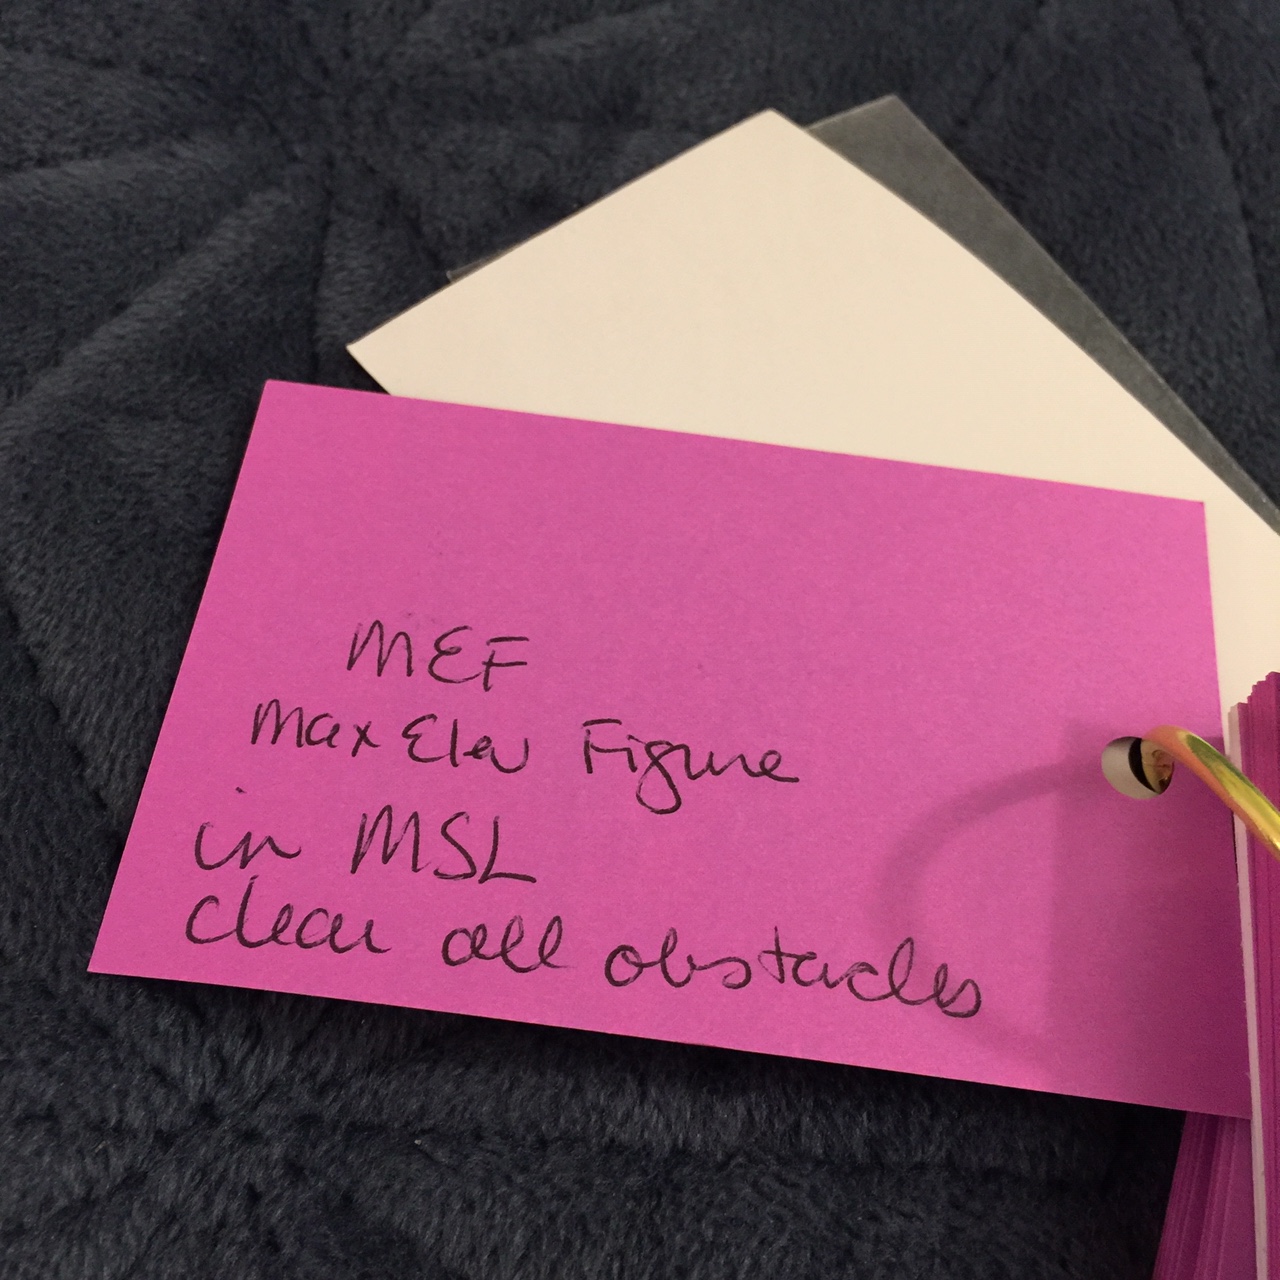 MEF
Max Elev Figure
in MSL
clear all obstacles